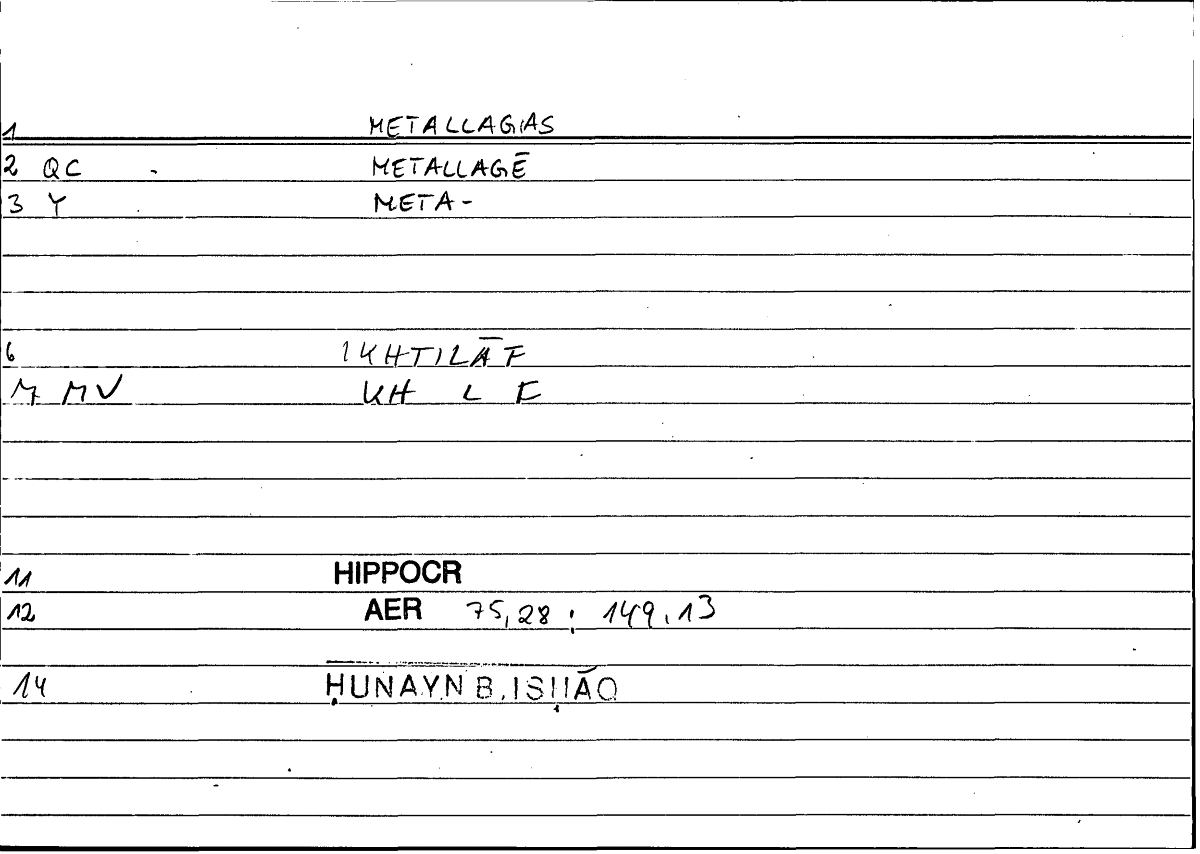 1 METALLAGIAS
2 QC METALLAGĒ
3 Y META-
6 IKHTILĀF
7 MV KH L F
11 HIPPOCR
12 AER 75,28 ; 149,13
14 ḤUNAYN B. ISḤĀQ